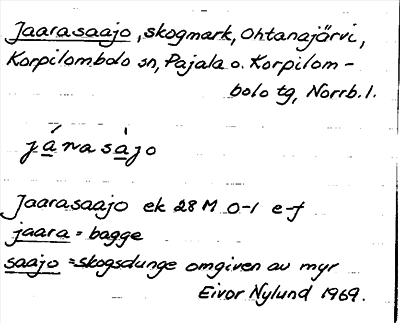 Jaarasaajo, skogmark, Ohtanajärvi,
Korpilombolo sn, Pajala o. Korpilom-
bolo tg, Norrb. l.
járasàjo
Jaarasaajo ek 28 M 0-1 e-f
jaara = bagge
saajo = skogsdunge omgiven av myr
Eivor Nylund 1969.